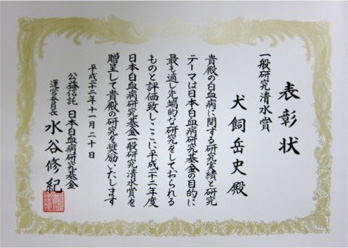 表彰状
一般研究清水賞
犬飼岳史殿
貴殿の白血病に関する研究実績と研究
テーマは日本白血病研究基金の目的に
最も適し先端的な研究をしておられる
ものと評価致しここに平成二十二年度
日本白血病研究基金一般研究清水賞を
贈呈して貴殿の研究を奨励いたします
平成二十二年十一月二十日
公益信託 日本白血病研究基金
運営委員長 水谷修紀